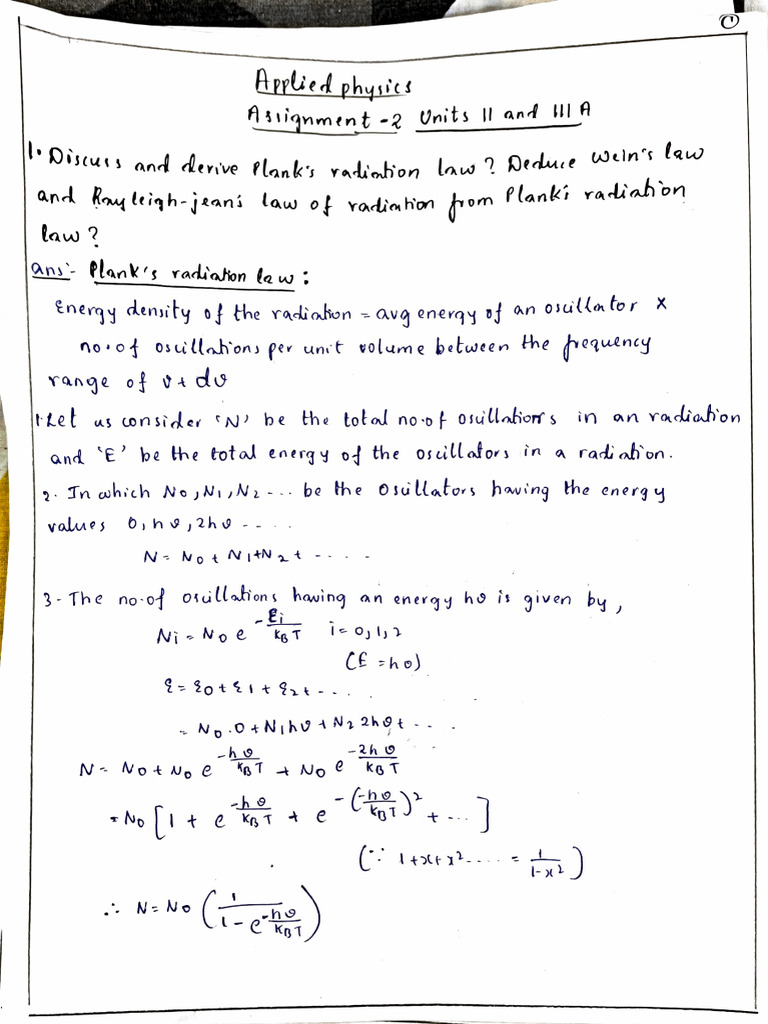 ①
Applied physics
Assignment -2 Units II and III A
1. Discuss and derive Plank's radiation law? Deduce Wein's law
and Rayleigh-jean's law of radiation from Plank's radiation
law?
ans:- Plank's radiation law:
Energy density of the radiation = avg energy of an oscillator ×
no. of oscillations per unit volume between the frequency
range of ν+dν
1. Let us consider 'N' be the total no.of osillations in an radiation
and 'E' be the total energy of the oscillators in a radiation.
2. In which N0, N1, N2 --- be the Osullators having the energy
values 0, hν, 2hν ----
N = N0 + N1 + N2 + ----
3- The no.of osullations having an energy hν is given by,
Ni = N0 e^{-Ei/KBT} i = 0,1,2
(E = hν)
ε = ε0 + ε1 + ε2 + ----
= N0.0 + N1hν + N2 2hν + ---
N = N0 + N0 e^{-hν/KBT} + N0 e^{-2hν/KBT}
= N0 [1 + e^{-hν/KBT} + e^{-(-hν/KBT)^2} + ---]
(∵ 1+x+x² ---- = 1/(1-x²))
∴ N = N0 (1/(1 - e^{-hν/KBT}))